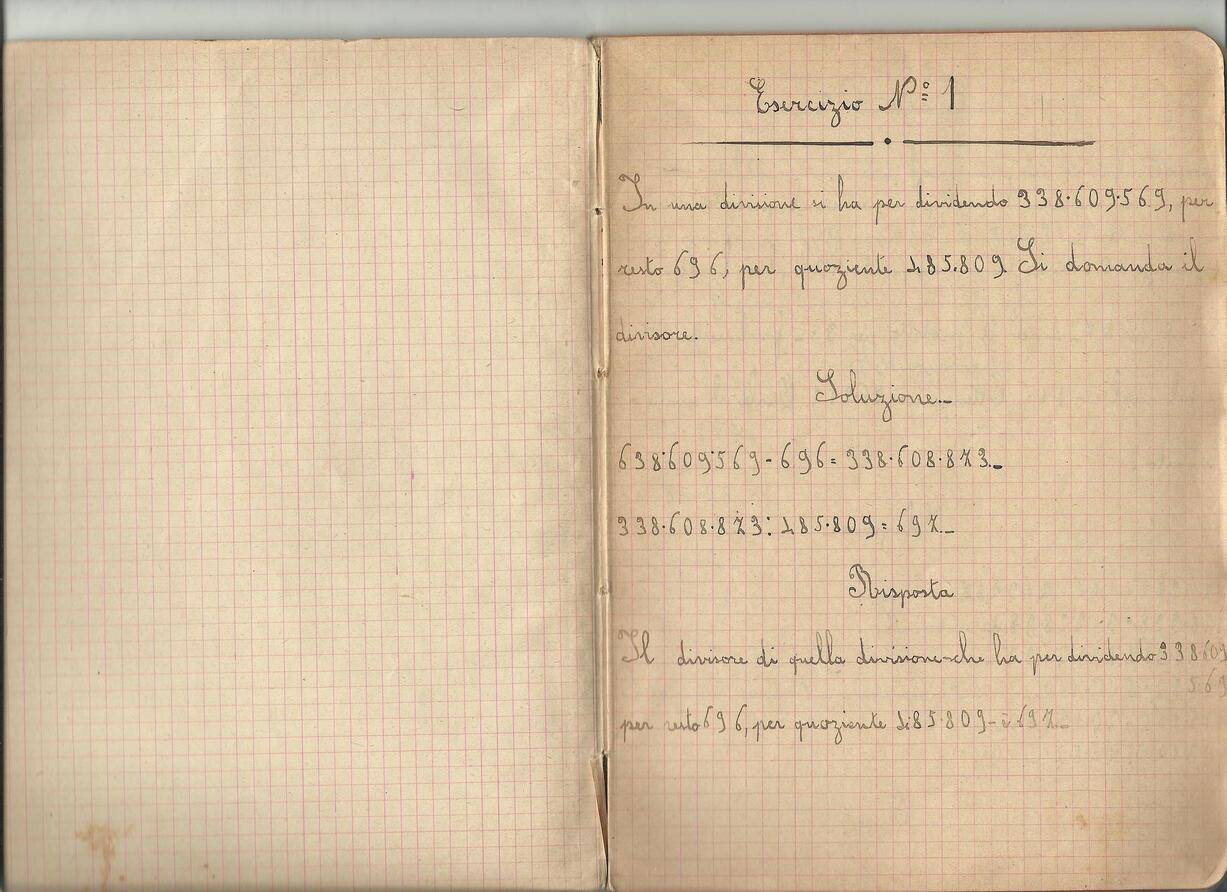 Esercizio Nº 1
In una divisione si ha per dividendo 338.609.569, per
resto 696, per quoziente 485.809. Si domanda il
divisore.
Soluzione.-
638.609.569 - 696 = 338.608.873.-
338.608.873 : 485.809 = 697.-
Risposta
Il divisore di quella divisione che ha per dividendo 338609
569
per resto 696, per quoziente 485.809 - è 697.-